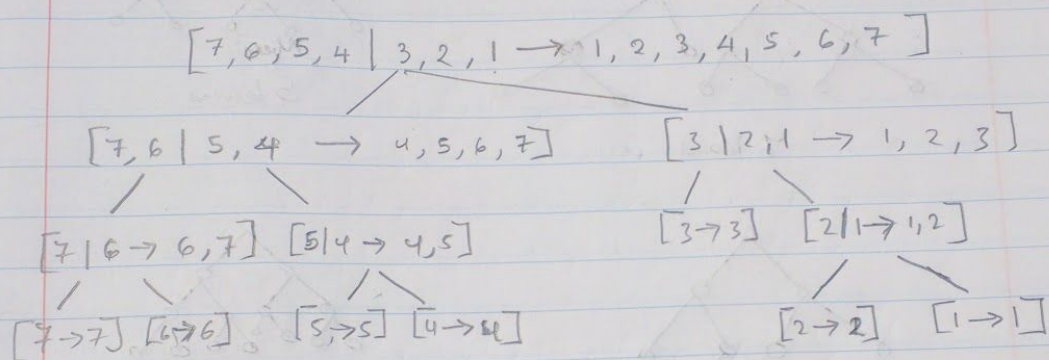 [7, 6, 5, 4 | 3, 2, 1 → 1, 2, 3, 4, 5, 6, 7]
[7, 6 | 5, 4 → 4, 5, 6, 7] [3 | 2, 1 → 1, 2, 3]
[7 | 6 → 6, 7] [5 | 4 → 4, 5] [3 → 3] [2 | 1 → 1, 2]
[7 → 7] [6 → 6] [5 → 5] [4 → 4] [2 → 2] [1 → 1]